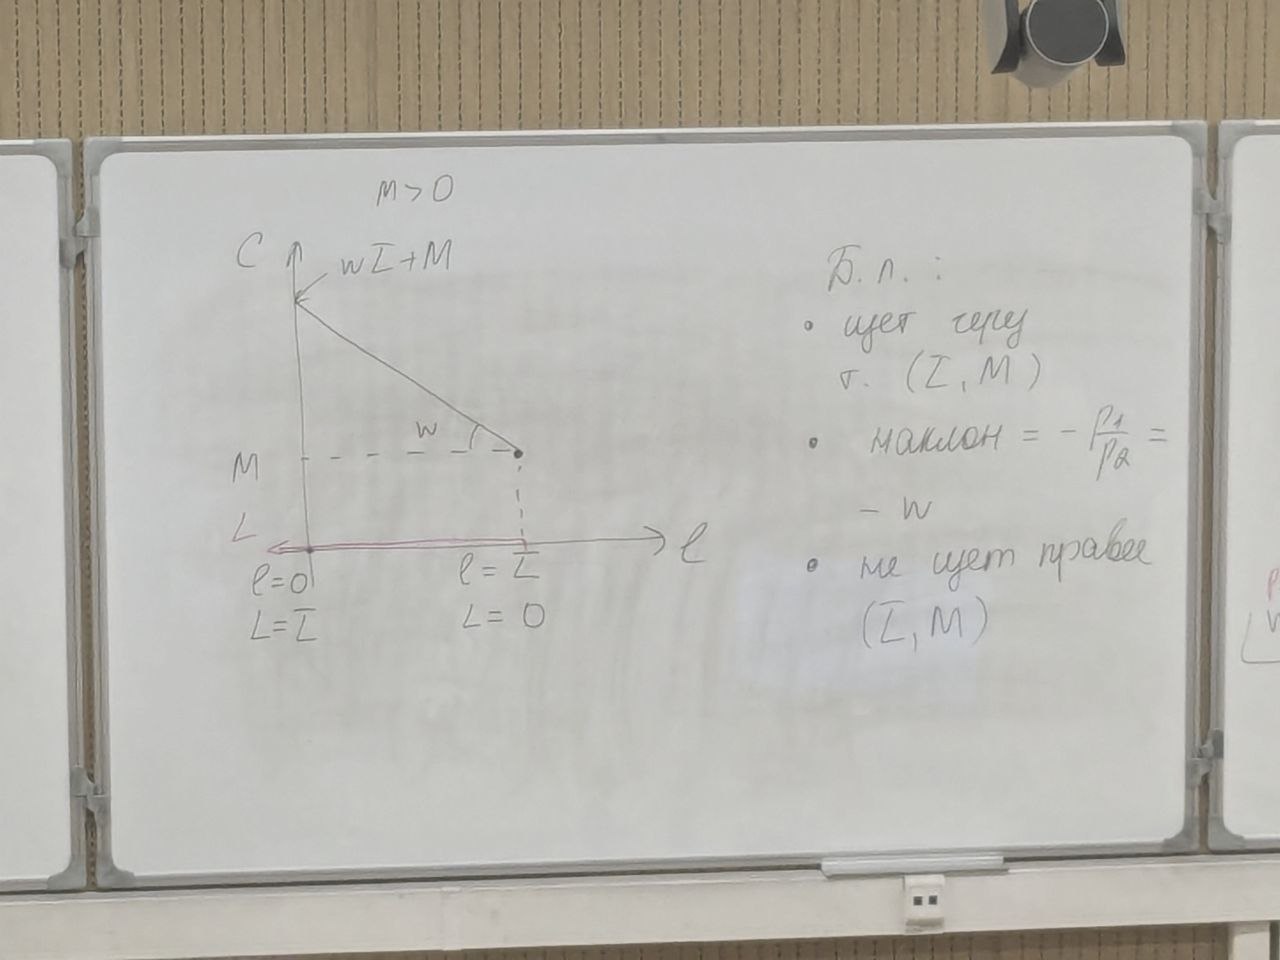 M > 0
C
wL̅ + M
w
M
L
l
l = 0
L = L̅
l = L̅
L = 0
Б.л. :
• идет через
т. (L̅, M)
• наклон = - p₁/p₂ =
- w
• не идет правее
(L̅, M)